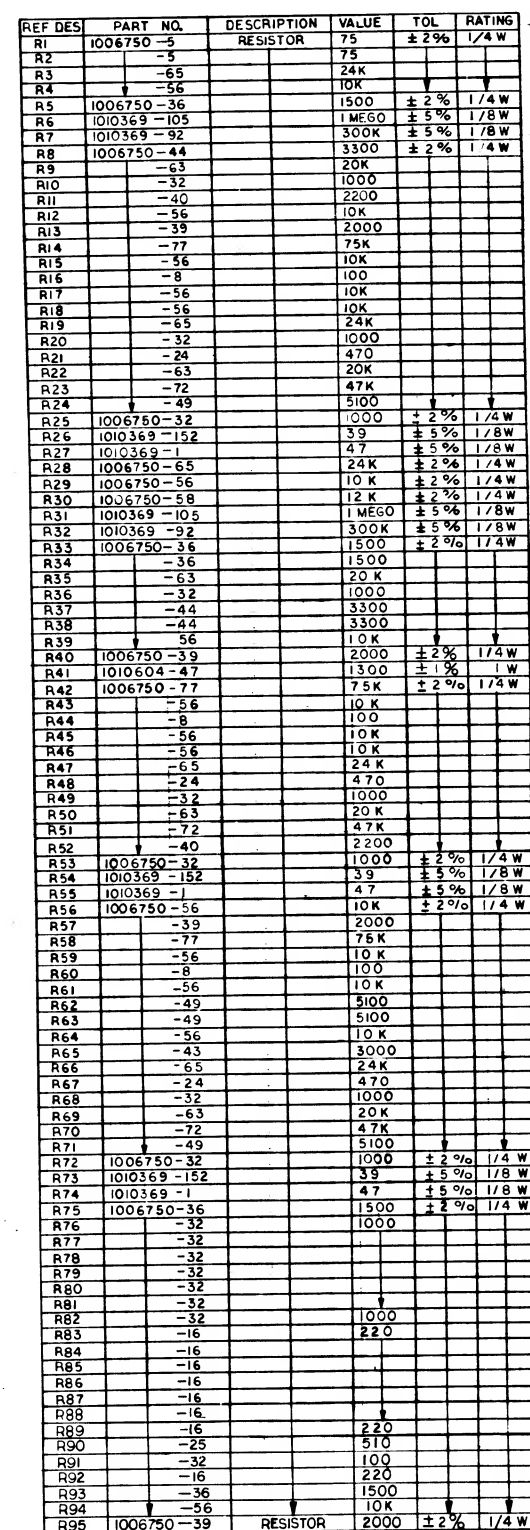 REF DES PART NO. DESCRIPTION VALUE TOL RATING
R1 1006750 -5 RESISTOR 75 ± 2% 1/4 W
R2 -5 75
R3 -65 24K
R4 -56 10K
R5 1006750 -36 1500 ± 2% 1/4 W
R6 1010369 -105 1 MEGO ± 5% 1/8 W
R7 1010369 -92 300K ± 5% 1/8 W
R8 1006750 -44 3300 ± 2% 1/4 W
R9 -63 20K
R10 -32 1000
R11 -40 2200
R12 -56 10K
R13 -39 2000
R14 -77 75K
R15 -56 10K
R16 -8 100
R17 -56 10K
R18 -56 10K
R19 -65 24K
R20 -32 1000
R21 -24 470
R22 -63 20K
R23 -72 47K
R24 -49 5100
R25 1006750 -32 1000 ± 2% 1/4W
R26 1010369 -152 39 ± 5% 1/8W
R27 1010369 -1 47 ± 5% 1/8W
R28 1006750 -65 24K ± 2% 1/4W
R29 1006750 -56 10 K ± 2% 1/4W
R30 1006750 -58 12 K ± 2% 1/4W
R31 1010369 -105 1 MEGO ± 5% 1/8W
R32 1010369 -92 300K ± 5% 1/8W
R33 1006750 -36 1500 ± 2% 1/4W
R34 -36 1500
R35 -63 20 K
R36 -32 1000
R37 -44 3300
R38 -44 3300
R39 56 10K
R40 1006750 -39 2000 ± 2% 1/4W
R41 1010604 -47 1300 ± 1% 1 W
R42 1006750 -77 75K ± 2% 1/4W
R43 -56 10 K
R44 -8 100
R45 -56 10K
R46 -56 10K
R47 -65 24 K
R48 -24 470
R49 -32 1000
R50 -63 20 K
R51 -72 47K
R52 -40 2200
R53 1006750 -32 1000 ± 2% 1/4 W
R54 1010369 -152 39 ± 5% 1/8 W
R55 1010369 -1 47 ± 5% 1/8 W
R56 1006750 -56 10K ± 2% 1/4 W
R57 -39 2000
R58 -77 75K
R59 -56 10 K
R60 -8 100
R61 -56 10 K
R62 -49 5100
R63 -49 5100
R64 -56 10 K
R65 -43 3000
R66 -65 24K
R67 -24 470
R68 -32 1000
R69 -63 20 K
R70 -72 47K
R71 -49 5100
R72 1006750 -32 1000 ± 2% 1/4 W
R73 1010369 -152 39 ± 5% 1/8 W
R74 1010369 -1 47 ± 5% 1/8 W
R75 1006750 -36 1500 ± 2% 1/4 W
R76 -32 1000
R77 -32
R78 -32
R79 -32
R80 -32
R81 -32
R82 -32 1000
R83 -16 220
R84 -16
R85 -16
R86 -16
R87 -16
R88 -16
R89 -16 220
R90 -25 510
R91 -32 100
R92 -16 220
R93 -36 1500
R94 -56 10K
R95 1006750 -39 RESISTOR 2000 ± 2% 1/4 W